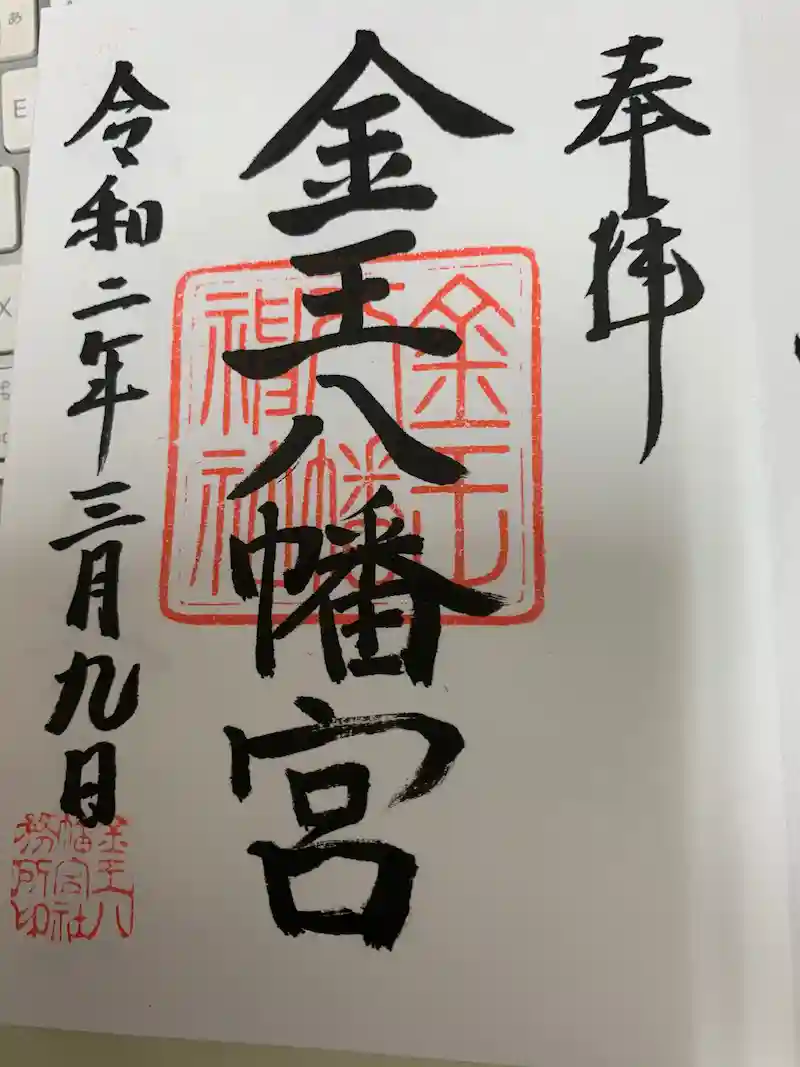 奉拝
金王八幡宮
令和二年三月九日
金王
八幡
神社
金王八
幡宮社
務所印
E
X
あ